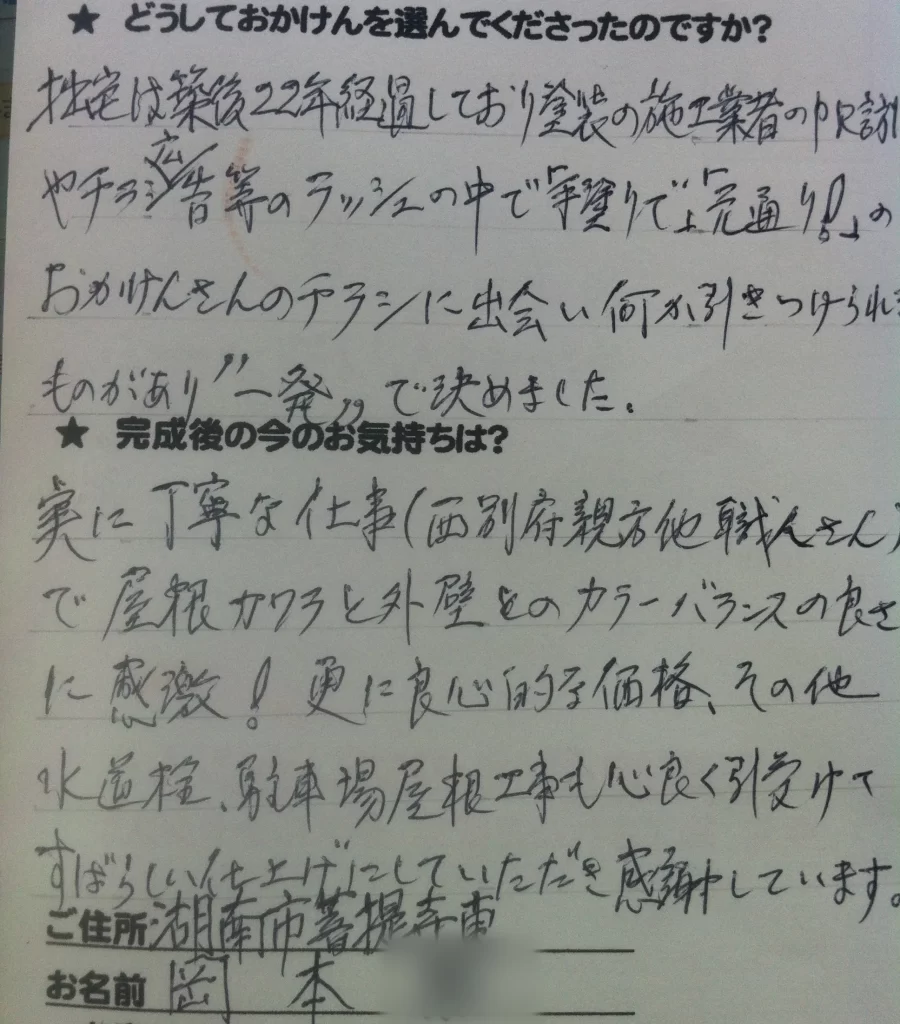 ★ どうしておかけんを選んでくださったのですか?
拙宅は築後22年経過しており塗装の施工業者の
やチラシ広告等のラッシュの中で「手塗りで」「完通り!」の
おかけんさんのチラシに出会い何か引きつけられる
ものがあり"一発"で決めました。
★ 完成後の今のお気持ちは?
実に丁寧な仕事(西別府親方他職人さん)
で屋根カワラと外壁とのカラーバランスの良さ
に感激!更に良心的な価格、その他
水道栓、駐車場屋根工事も心良く引受けて
すばらしい仕上げにしていただき感謝申しています。
ご住所 湖南市菩提寺東
お名前 岡本